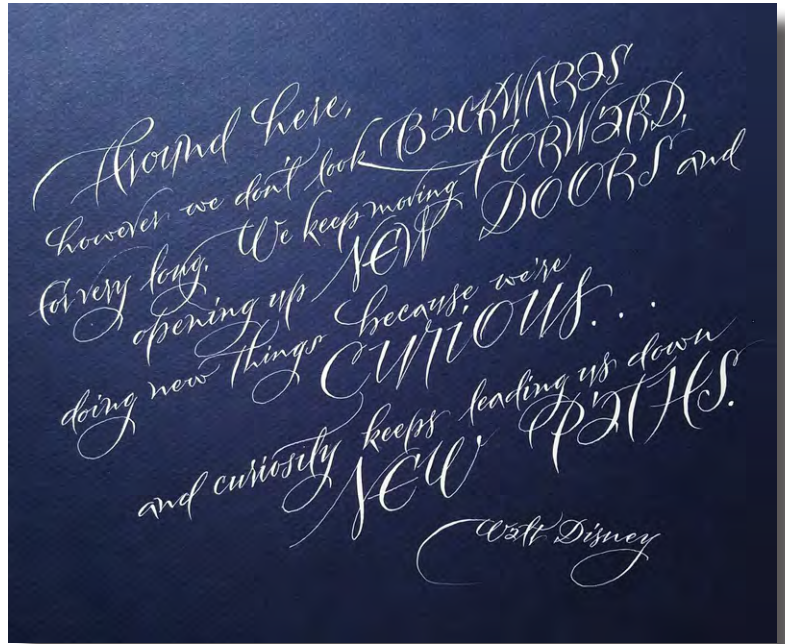 Around here,
however we don't look BACKWARDS
for very long. We keep moving FORWARD,
opening up NEW DOORS and
doing new things because we're
CURIOUS...
and curiosity keeps leading us down
NEW PATHS.
Walt Disney